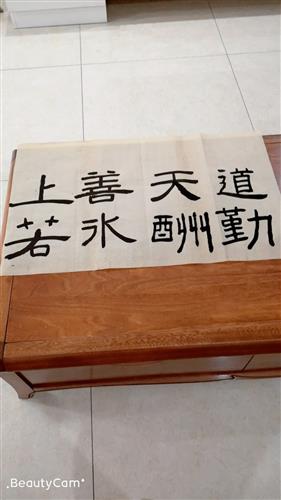 上善
若水
天道
酬勤
BeautyCam